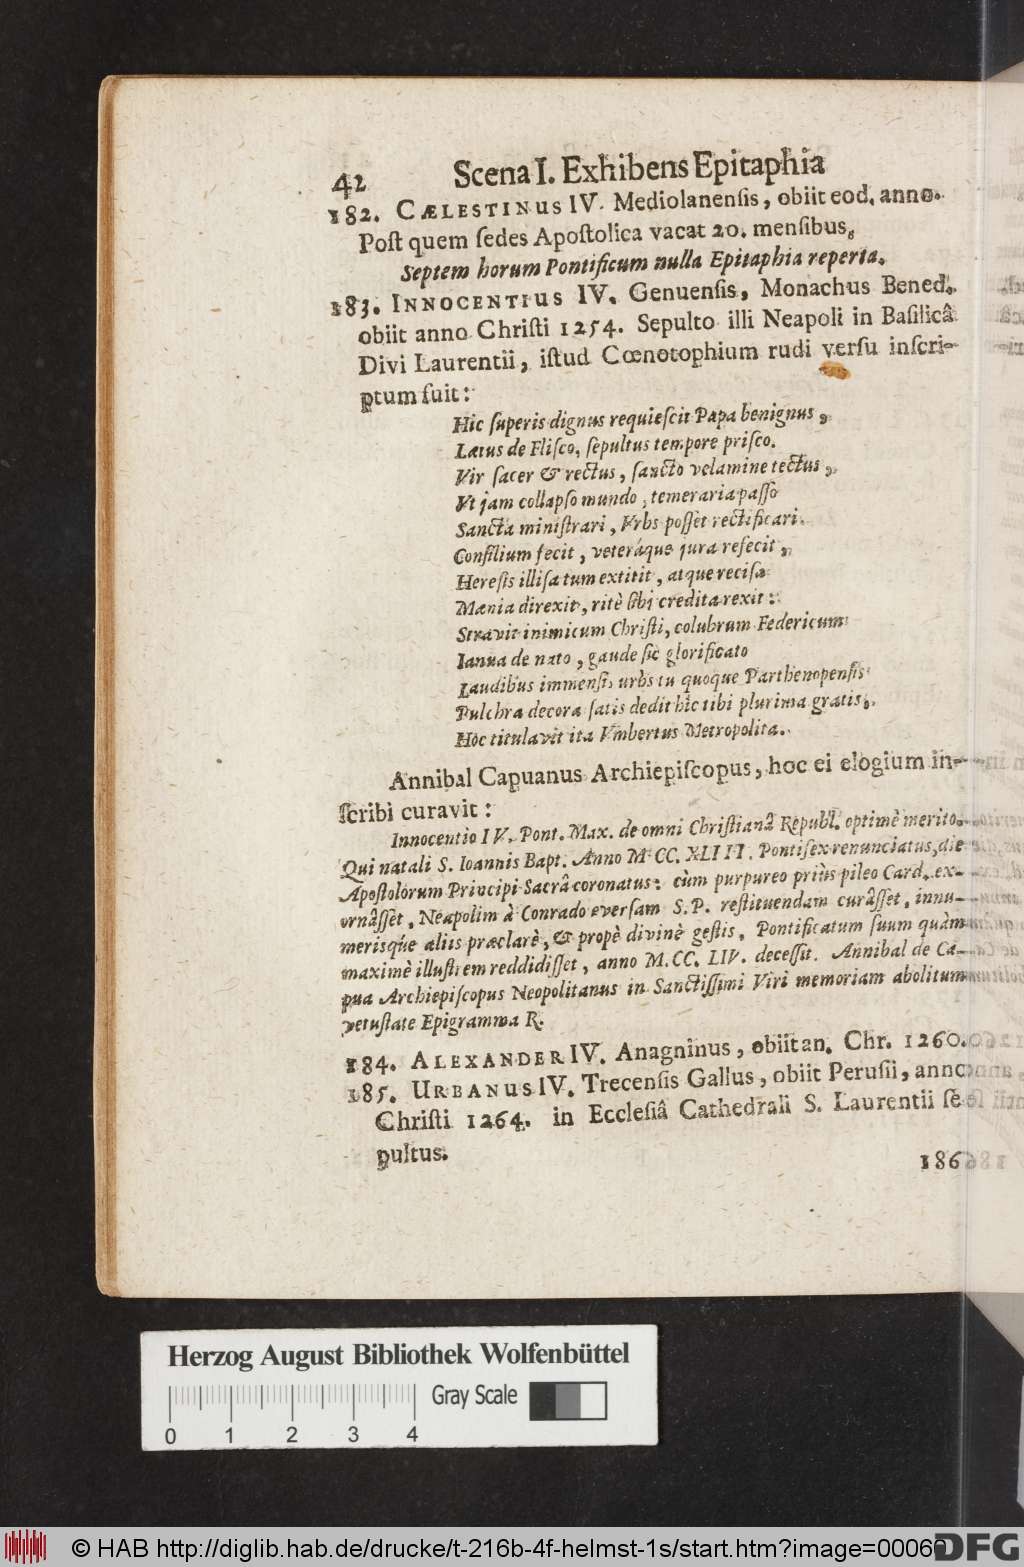 42 Scena I. Exhibens Epitaphia
182. CÆLESTINUS IV. Mediolanensis, obiit eod. anno.
Post quem sedes Apostolica vacat 20. mensibus,
Septem horum Pontificum nulla Epitaphia reperta.
183. INNOCENTIUS IV. Genuensis, Monachus Bened.
obiit anno Christi 1254. Sepulto illi Neapoli in Basilicâ
Divi Laurentii, istud Cœnotophium rudi versu inscri-
ptum fuit:
Hic superis dignus requiescit Papa benignus,
Lætus de Flisco, sepultus tempore prisco.
Vir sacer & rectus, sancto velamine tectus,
Vt jam collapso mundo, temeraria passo
Sancta ministrari, Vrbs posset rectificari.
Consilium fecit, veteráque jura refecit,
Heresis illisa tum extitit, atque recisa
Mænia direxit, ritè sibi credita rexit:
Stravit inimicum Christi, colubrum Federicum
Ianua de nato, gaude sic glorificato
Laudibus immensis urbs tu quoque Parthenopensis
Pulchra decora satis dedit hic tibi plurima gratis,
Hoc titulavit ita Vmbertus Metropolita.
Annibal Capuanus Archiepiscopus, hoc ei elogium in-
scribi curavit:
Innocentio IV. Pont. Max. de omni Christianâ Republ. optimè merito.
Qui natali S. Ioannis Bapt. Anno M CC. XLIII. Pontifex renunciatus, die
Apostolorum Principi Sacrâ coronatus: cùm purpureo priùs pileo Card. ex-
ornâsset, Neapolim à Conrado eversam S.P. restituendam curâsset, innu-
merisqúe aliis præclarè, & propè divinè gestis, Pontificatum suum quàm
maximè illustrem reddidisset, anno M.CC. LIV. decessit. Annibal de Ca-
pua Archiepiscopus Neopolitanus in Sanctissimi Viri memoriam abolitum
vetustate Epigramma R.
184. ALEXANDER IV. Anagninus, obiit an. Chr. 1260.
185. URBANUS IV. Trecensis Gallus, obiit Perusii, anno
Christi 1264. in Ecclesiâ Cathedrali S. Laurentii se
pultus.
186
Herzog August Bibliothek Wolfenbüttel
Gray Scale
0 1 2 3 4
© HAB http://diglib.hab.de/drucke/t-216b-4f-helmst-1s/start.htm?image=00060
DFG